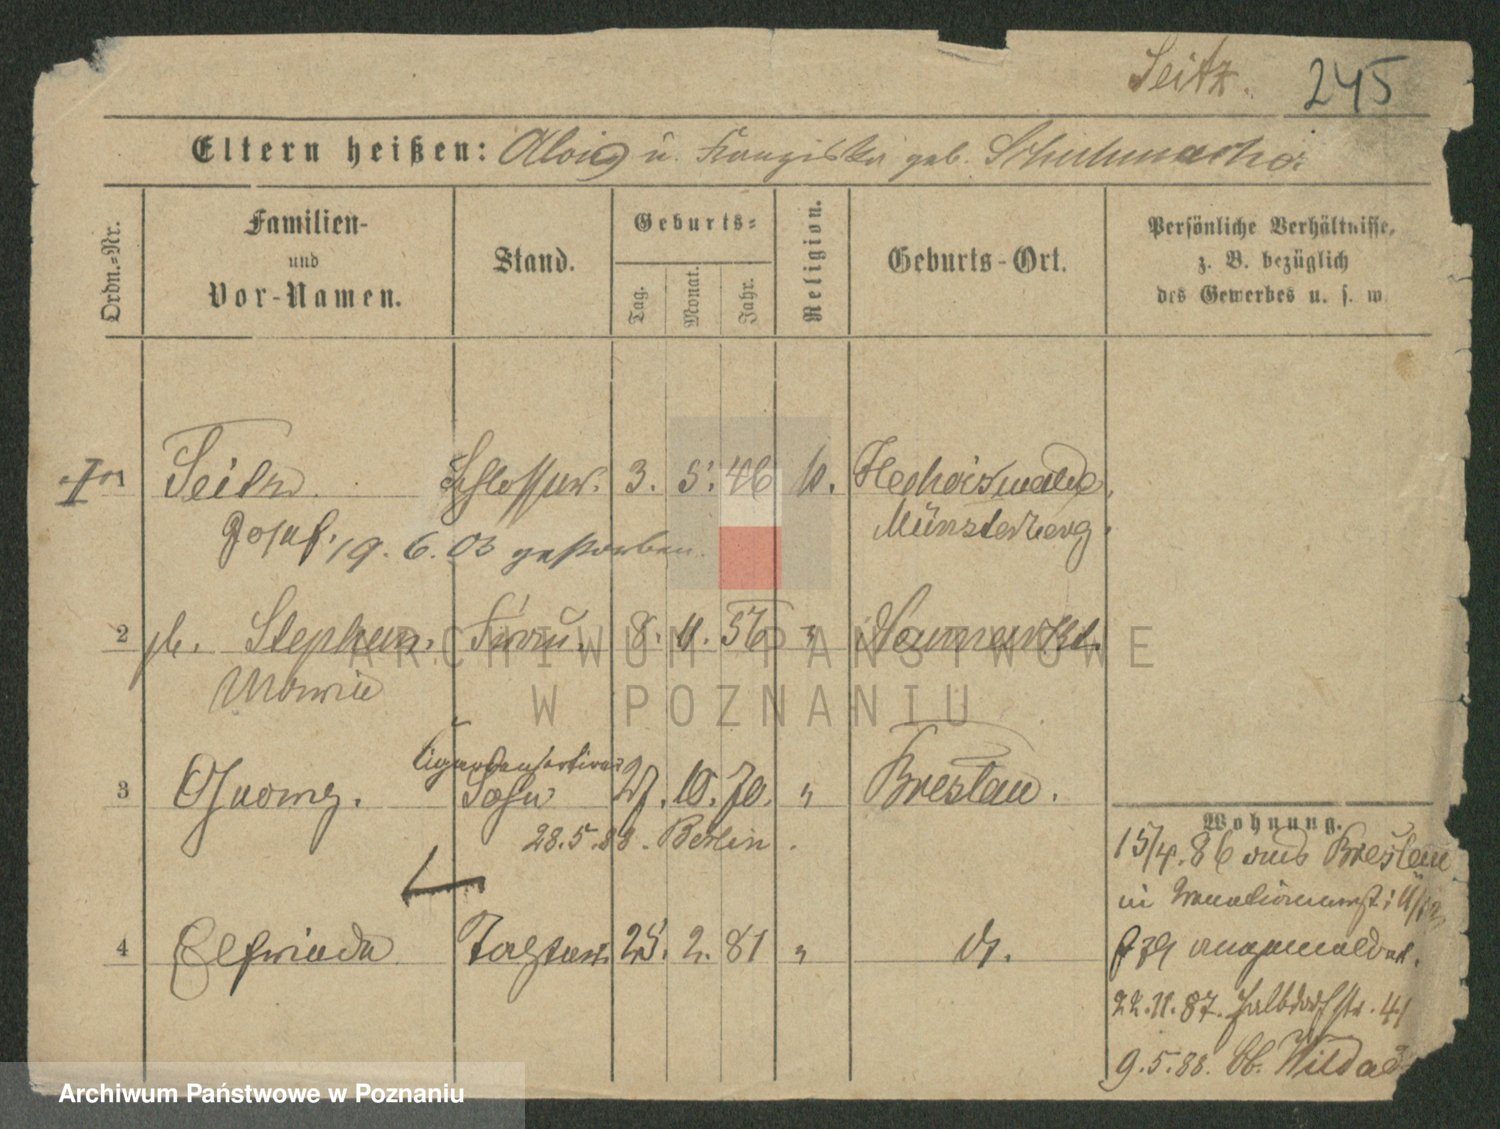 Seitz. 245
Eltern heißen: Alois u. Franziska geb. Schuhmacher
Ordn.-Nr.
Familien-
und
Vor-Namen.
Stand.
Geburts-
Tag.
Monat.
Jahr.
Religion.
Geburts-Ort.
Persönliche Verhältnisse,
z. B. bezüglich
des Gewerbes u. s. w.
Seitz Schlosser. 3. 5. 46 k.
Münsterberg.
Josef. 19. 6. 03 gestorben.
2 Stephan. Frau. 8. 11. 56 " Neumarkt.
Marie
Cigarrensortirer
3 Georg. Sohn 27. 10. 70. " Breslau.
28. 5. 88. Berlin.
4 Elfriede Tochter. 25. 2. 81 " d.
Wohnung.
15/4. 86 aus Breslau
in
angemeldet.
22. 11. 87. Halbdorfstr. 41
9. 5. 88. Ob. Wilda
ARCHIWUM PAŃSTWOWE
W POZNANIU
Archiwum Państwowe w Poznaniu